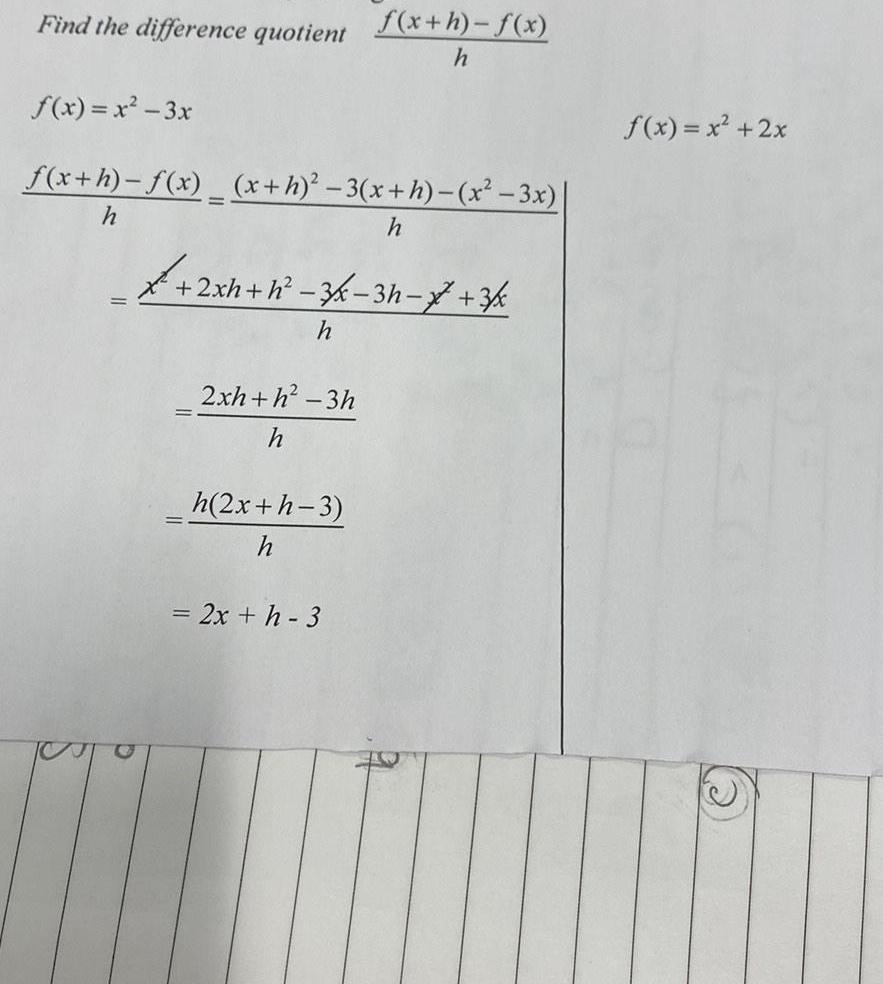 Find the difference quotient f(x+h)−f(x) / h
f(x) = x² − 3x
f(x) = x² + 2x
f(x+h)−f(x) / h = (x+h)² − 3(x+h)−(x² − 3x) / h
= x² + 2xh + h² − 3x − 3h − x² + 3x / h
= 2xh + h² − 3h / h
= h(2x + h − 3) / h
= 2x + h - 3